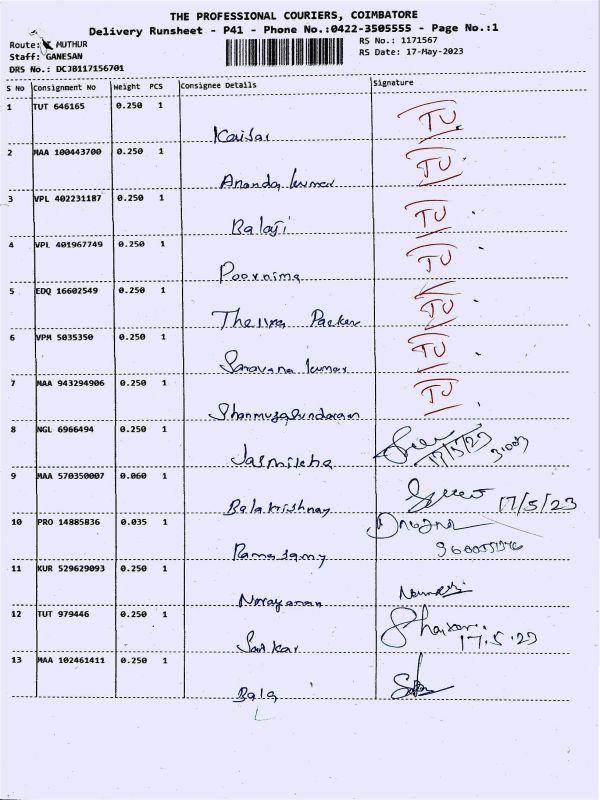 THE PROFESSIONAL COURIERS, COIMBATORE
Delivery Runsheet - P41 - Phone No.:0422-3505555 - Page No.:1
Route: MUTHUR
RS No.: 1171567
Staff: GANESAN
RS Date: 17-May-2023
DRS No.: DCJB117156701
S No Consignment No Weight PCS Consignee Details Signature
1 TUT 646165 0.250 1 TU
2 MAA 100443700 0.250 1 Ananda kumar TU
3 VPL 402231187 0.250 1 Balaji TU
4 VPL 401967749 0.250 1 Poornima TU
5 EDQ 16602549 0.250 1 TU
6 VPM 5035350 0.250 1 Saravana kumar TU
7 MAA 943294906 0.250 1 Shanmugasundaram TU
8 NGL 6966494 0.250 1 17/5/23
9 MAA 570350007 0.060 1 Balakrishnan 17/5/23
10 PRO 14885836 0.035 1 Ramasamy
11 KUR 529629093 0.250 1 Narayanan
12 TUT 979446 0.250 1 Sankar 17.5.23
13 MAA 102461411 0.250 1 Bala